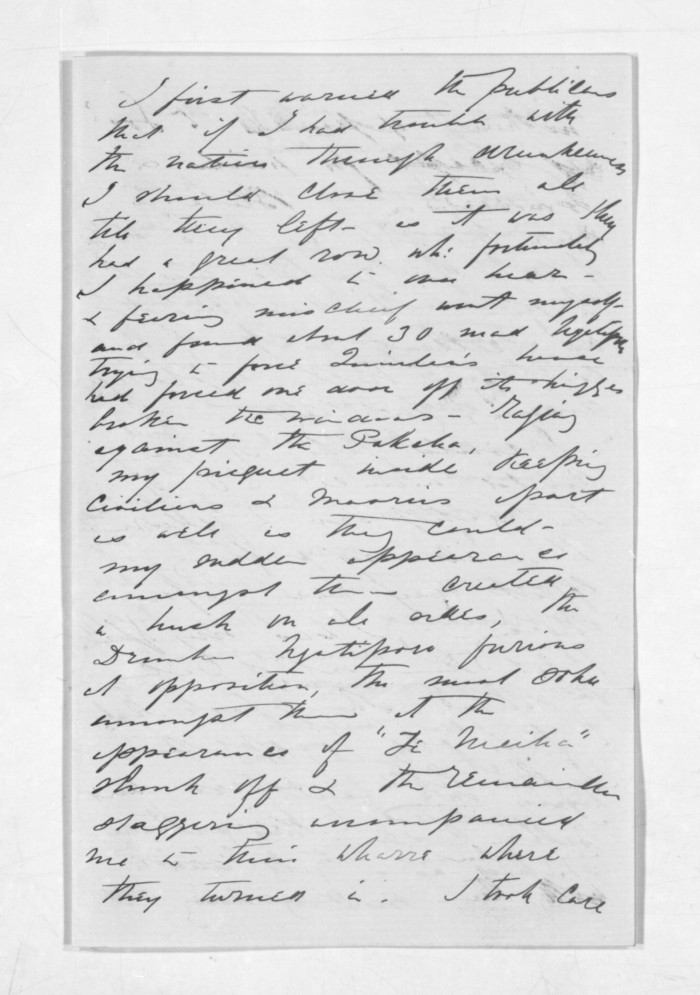 I first warned the publicans
that if I had trouble with
the natives through drunkenness
I should close them all
till they left - as it was they
had a great row. wh: fortunately
I happened to over hear -
& fearing mischief went myself
and found about 30 mad Ngatiporo
trying to force Quinlan's house
had forced one door off its hinges
broken the windows - Raging
against the Pakeha,
my picquet inside keeping
Civilians & Maoris apart
as well as they could -
my sudden appearance
amongst them created
a hush on all sides, the
Drunken Ngatiporo furious
at opposition, the most sober
amongst them at the
appearance of "Te
slunk off & the remainder
staggering accompanied
me to their wharre where
they turned in. I took care